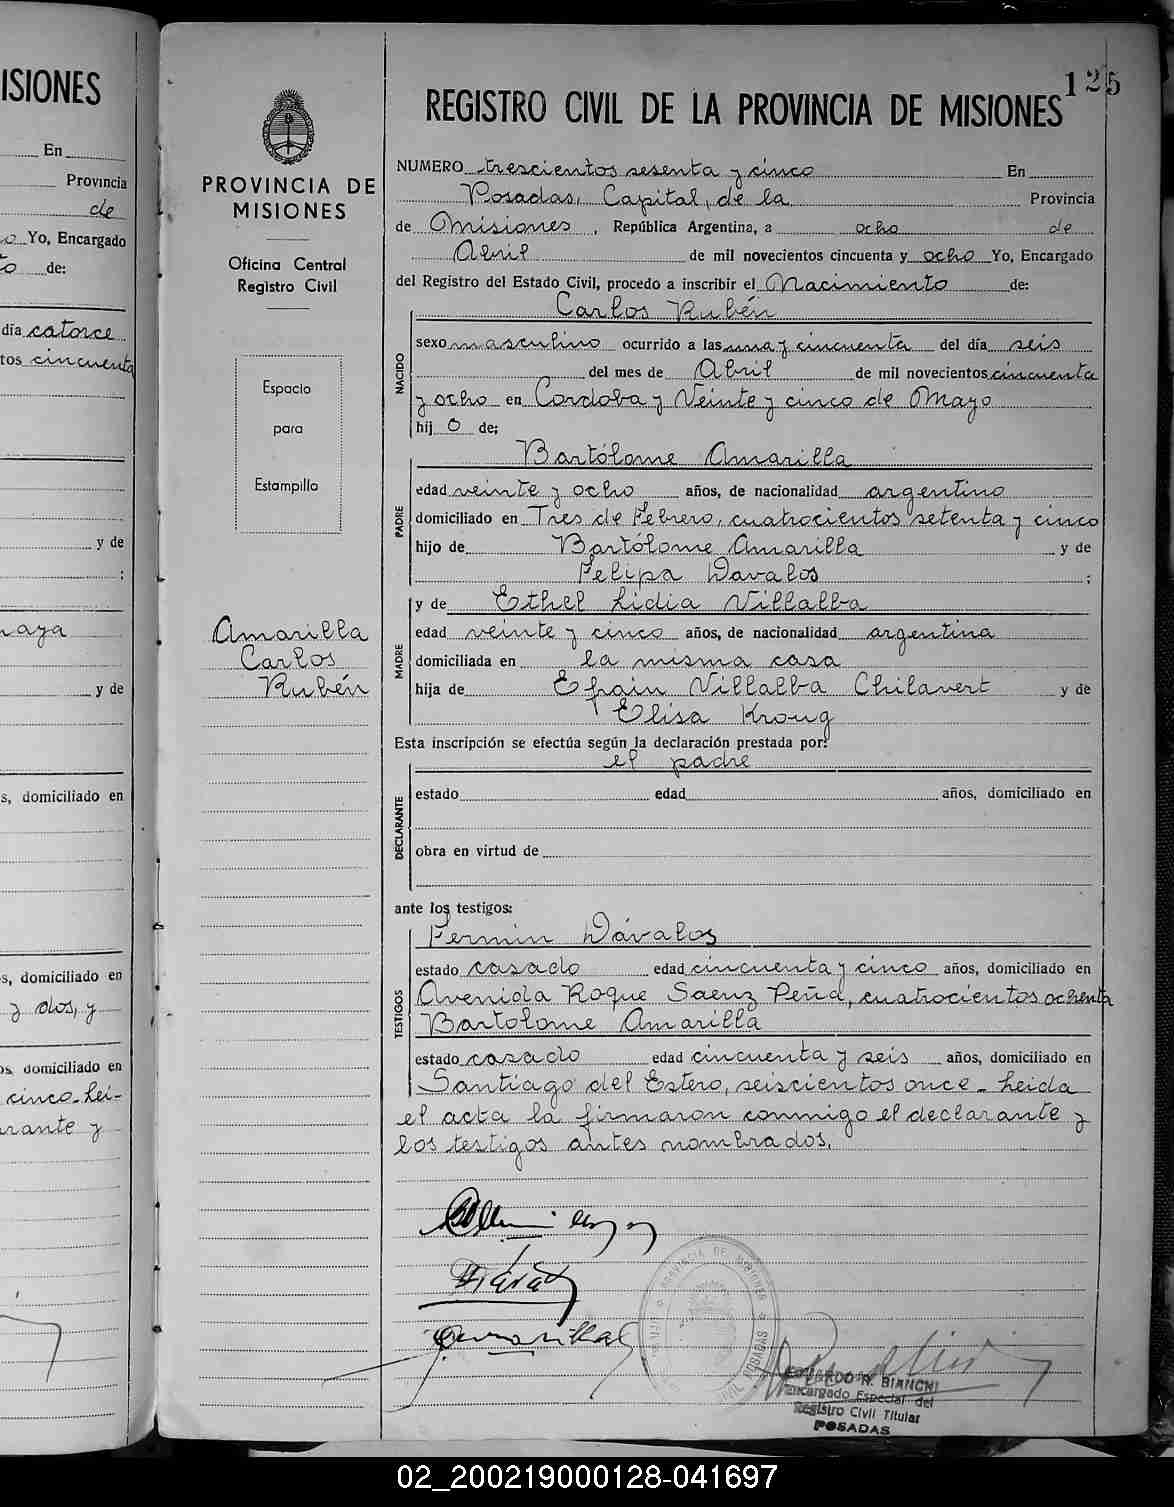 ISIONES
En
Provincia
de
Yo, Encargado
to de:
día catorce
tos cincuenta
y de
;
naya
y de
s, domiciliado en
s, domiciliado en
y dos, y
os, domiciliado en
cinco.-Leí-
rante y
PROVINCIA DE
MISIONES
Oficina Central
Registro Civil
Espacio
para
Estampilla
Amarilla
Carlos
Rubén
125
REGISTRO CIVIL DE LA PROVINCIA DE MISIONES
NUMERO trescientos sesenta y cinco En
Posadas, Capital, de la Provincia
de Misiones, República Argentina, a ocho de
Abril de mil novecientos cincuenta y ocho Yo, Encargado
del Registro del Estado Civil, procedo a inscribir el Nacimiento de:
Carlos Rubén
NACIDO
sexo masculino ocurrido a las una y cincuenta del día seis
del mes de Abril de mil novecientos cincuenta
y ocho en Cordoba y Veinte y cinco de Mayo
hij o de;
Bartólome Amarilla
PADRE
edad veinte y ocho años, de nacionalidad argentino
domiciliado en Tres de Febrero, cuatrocientos setenta y cinco
hijo de Bartólome Amarilla y de
Felipa Davalos ;
y de Ethel Lidia Villalba
MADRE
edad veinte y cinco años, de nacionalidad argentina
domiciliada en la misma casa
hija de Efrain Villalba Chilavert y de
Elisa Kroug
Esta inscripción se efectúa según la declaración prestada por:
el padre
DECLARANTE
estado edad años, domiciliado en
obra en virtud de
ante los testigos:
Fermin Dávalos
TESTIGOS
estado casado edad cincuenta y cinco años, domiciliado en
Avenida Roque Saenz Peña, cuatrocientos ochenta
Bartolome Amarilla
estado casado edad cincuenta y seis años, domiciliado en
Santiago del Estero, seiscientos once.- Leida
el acta la firmaron conmigo el declarante y
los testigos antes nombrados.
PROVINCIA DE MISIONES
CIVIL POSADAS
EDUARDO R. BIANCHI
Encargado Especial del
Registro Civil Titular
POSADAS
02_200219000128-041697